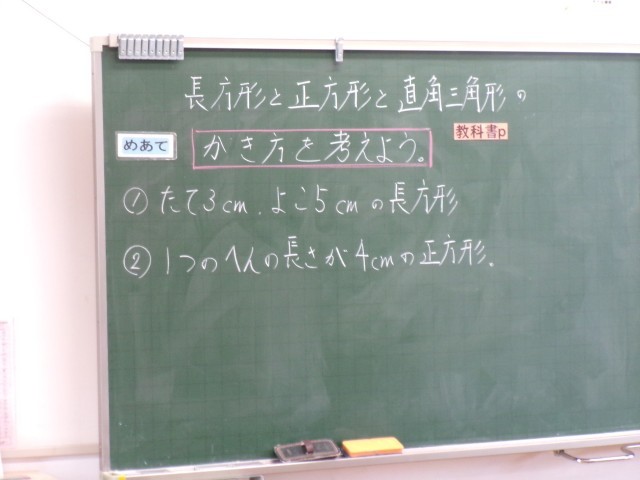 長方形と正方形と直角三角形の
めあて かき方を考えよう。 教科書p
① たて3cm、よこ5cmの長方形
② 1つのへんの長さが4cmの正方形.